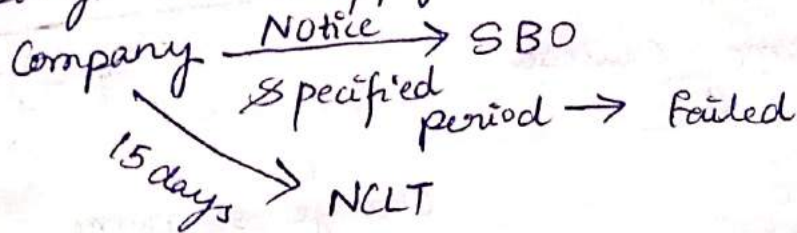 Company Notice → SBO
Specified period → Failed
15 days → NCLT